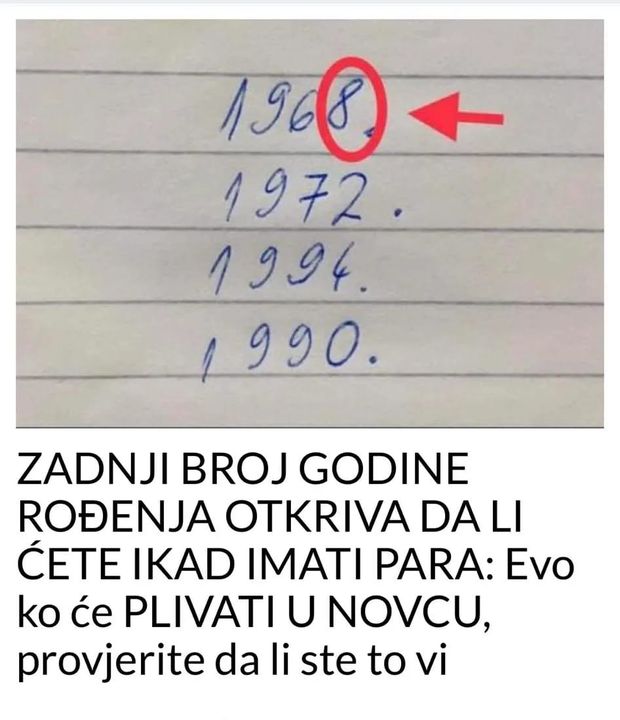 1968.
1972.
1994.
1990.
ZADNJI BROJ GODINE
ROĐENJA OTKRIVA DA LI
ĆETE IKAD IMATI PARA: Evo
ko će PLIVATI U NOVCU,
provjerite da li ste to vi